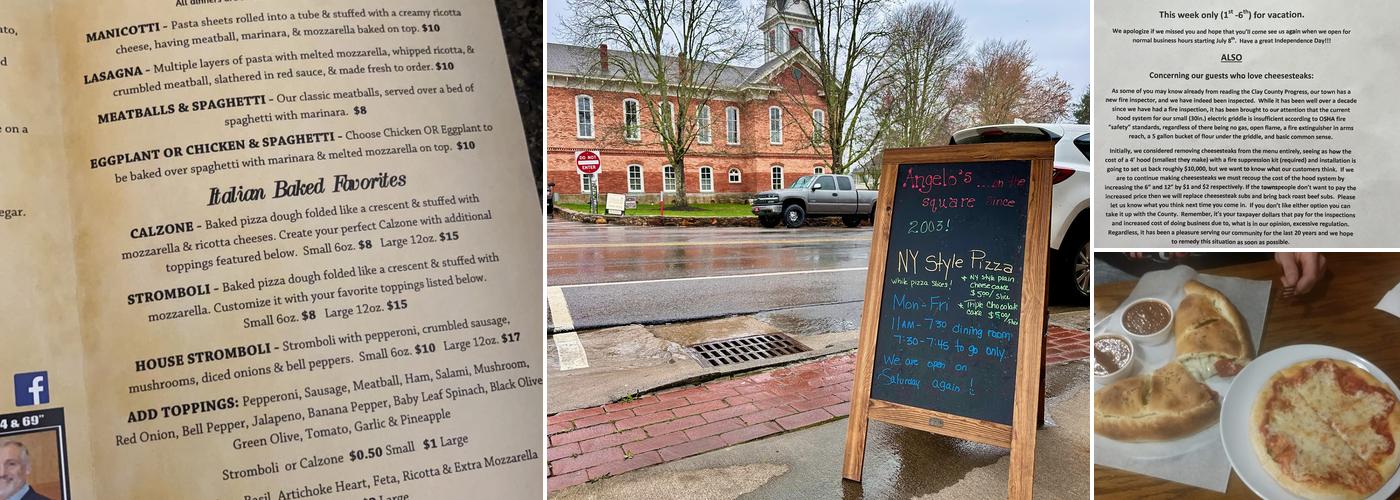 All dinners
MANICOTTI - Pasta sheets rolled into a tube & stuffed with a creamy ricotta
cheese, having meatball, marinara, & mozzarella baked on top. $10
LASAGNA - Multiple layers of pasta with melted mozzarella, whipped ricotta, &
crumbled meatball, slathered in red sauce, & made fresh to order. $10
MEATBALLS & SPAGHETTI - Our classic meatballs, served over a bed of
spaghetti with marinara. $8
EGGPLANT OR CHICKEN & SPAGHETTI - Choose Chicken OR Eggplant to
be baked over spaghetti with marinara & melted mozzarella on top. $10
Italian Baked Favorites
CALZONE - Baked pizza dough folded like a crescent & stuffed with
mozzarella & ricotta cheeses. Create your perfect Calzone with additional
toppings featured below. Small 6oz. $8 Large 12oz. $15
STROMBOLI - Baked pizza dough folded like a crescent & stuffed with
mozzarella. Customize it with your favorite toppings listed below.
Small 6oz. $8 Large 12oz. $15
HOUSE STROMBOLI - Stromboli with pepperoni, crumbled sausage,
mushrooms, diced onions & bell peppers. Small 6oz. $10 Large 12oz. $17
ADD TOPPINGS: Pepperoni, Sausage, Meatball, Ham, Salami, Mushroom,
Red Onion, Bell Pepper, Jalapeno, Banana Pepper, Baby Leaf Spinach, Black Olive
Green Olive, Tomato, Garlic & Pineapple
Stromboli or Calzone $0.50 Small $1 Large
Basil, Artichoke Heart, Feta, Ricotta & Extra Mozzarella
Large
e on a
egar.
f
4 & 69"
DO NOT
ENTER
Angelo's ...on the
square since
2003!
NY Style Pizza
whole pizza slices!
* NY style plain
cheese cake
$5.00/slice
* Triple Chocolate
cake $5.00/slice
Mon-Fri
11AM-7:30 dining room
7:30-7:45 to go only...
We are open on
Saturday again!
This week only (1st -6th) for vacation.
We apologize if we missed you and hope that you'll come see us again when we open for
normal business hours starting July 8th. Have a great Independence Day!!!
ALSO
Concerning our guests who love cheesesteaks:
As some of you may know already from reading the Clay County Progress, our town has a
new fire inspector, and we have indeed been inspected. While it has been well over a decade
since we have had a fire inspection, it has been brought to our attention that the current
hood system for our small (30in.) electric griddle is insufficient according to OSHA fire
"safety" standards, regardless of there being no gas, open flame, a fire extinguisher in arms
reach, a 5 gallon bucket of flour under the griddle, and basic common sense.
Initially, we considered removing cheesesteaks from the menu entirely, seeing as how the
cost of a 4' hood (smallest they make) with a fire suppression kit (required) and installation is
going to set us back roughly $10,000, but we want to know what our customers think. If we
are to continue making cheesesteaks we must recoup the cost of the hood system by
increasing the 6" and 12" by $1 and $2 respectively. If the townspeople don't want to pay the
increased price then we will replace cheesesteak subs and bring back roast beef subs. Please
let us know what you think next time you come in. If you don't like either option you can
take it up with the County. Remember, it's your taxpayer dollars that pay for the inspections
and increased cost of doing business due to, what is in our opinion, excessive regulation.
Regardless, it has been a pleasure serving our community for the last 20 years and we hope
to remedy this situation as soon as possible.